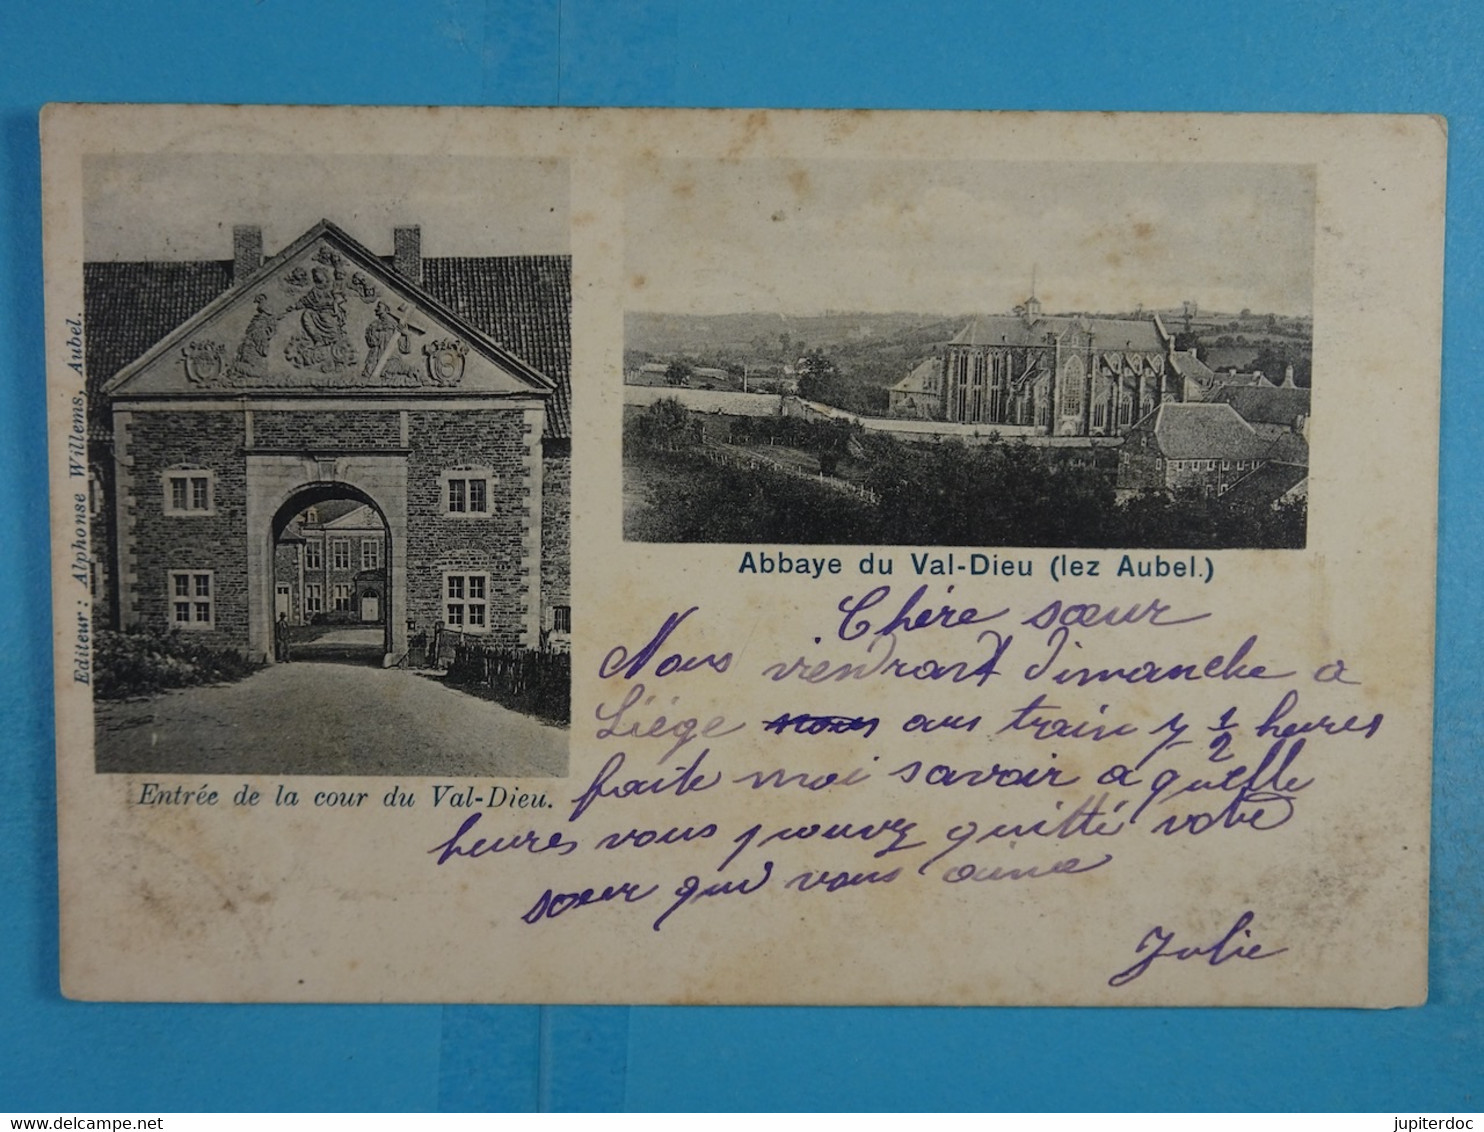 Editeur: Alphonse Willems, Aubel.
Entrée de la cour du Val-Dieu.
Abbaye du Val-Dieu (lez Aubel.)
Chére sœur
Nous viendrart dimanche a
Liége nous aus train 7 1/2 heures
faite moi savoir a quelle
heures vous pouvez quitté votre
sœur qui vous aime
Julie
delcampe.net
jupiterdoc